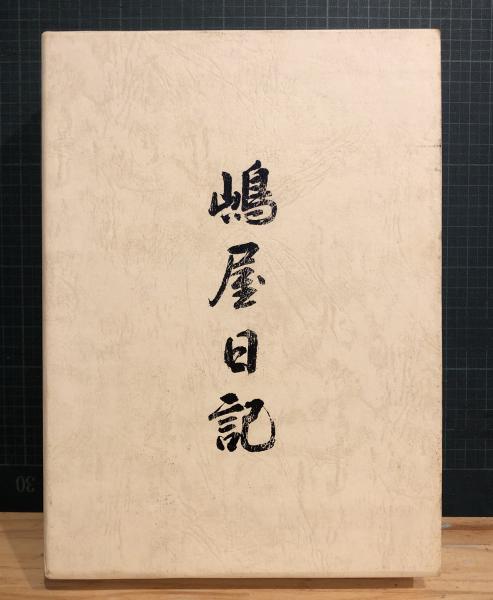 嶋屋日記
30